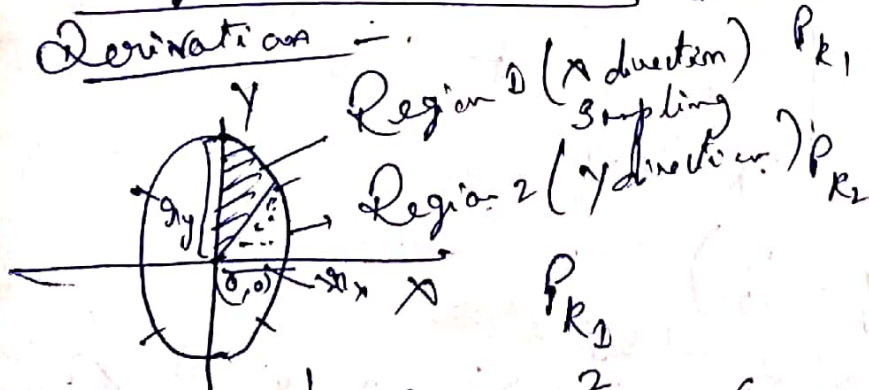 Derivation :-
Y
Region 1 (X direction) PK1
Sampling
Region 2 (Y direction) PK2
ry
(0,0)
rx
X
PK1
2